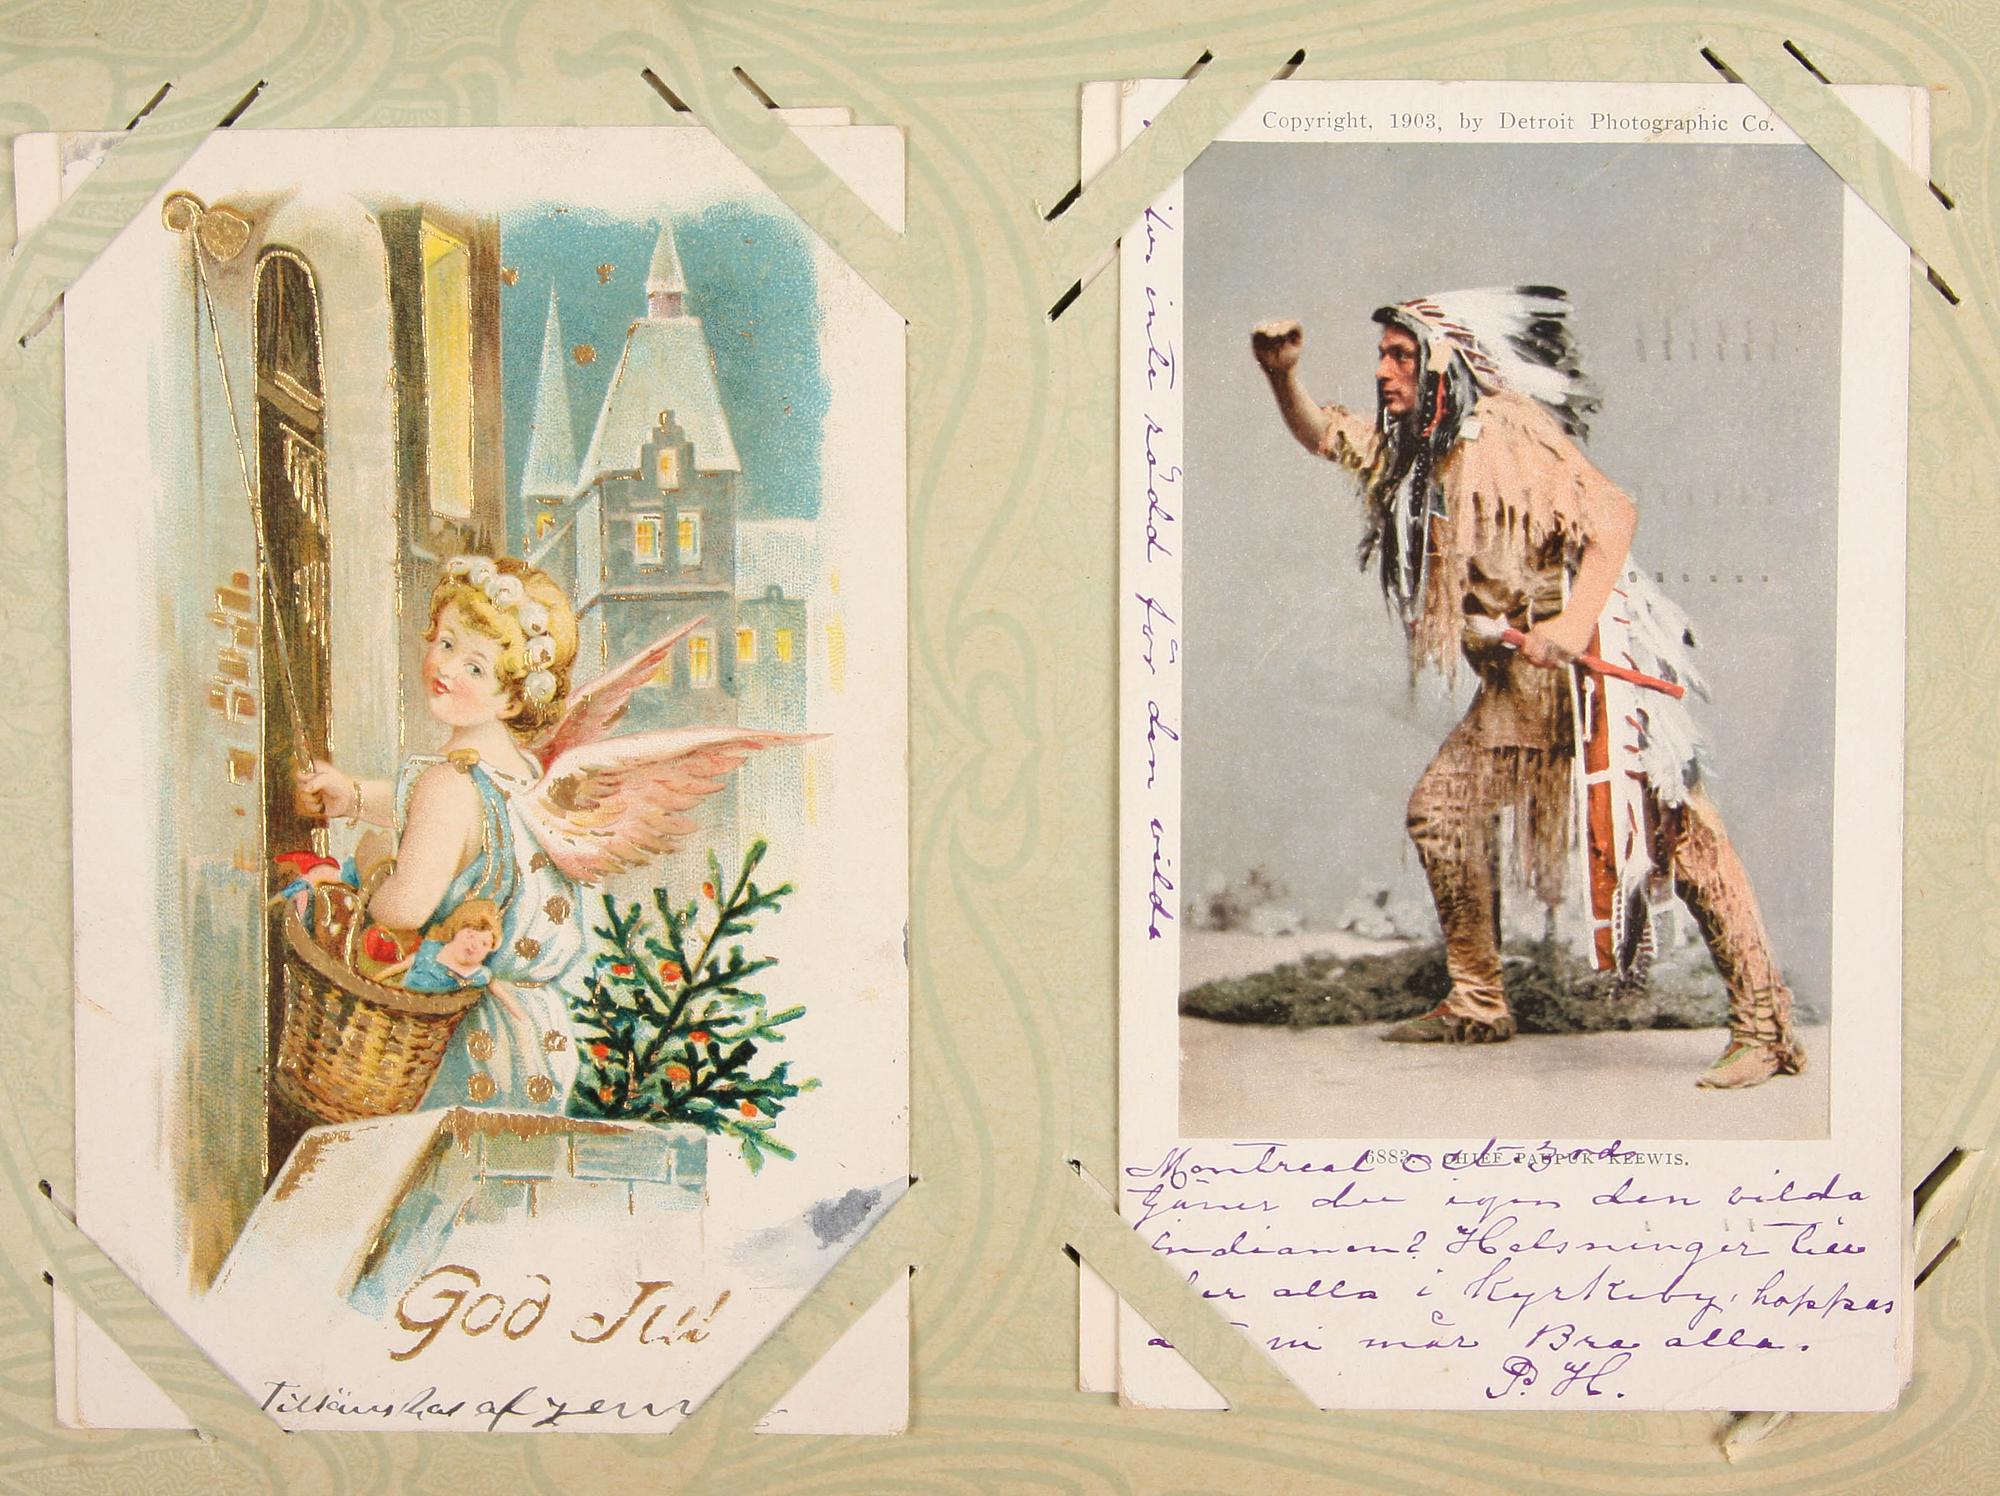 God Jul
Tillönskas af
Copyright, 1903, by Detroit Photographic Co.
inte rädd för den vilda
6883. CHIEF PAUPUK KEEWIS.
Montreal oct. 3rde
Känner du igen den vilda
indianen? Helsningar till
er alla i Kyrkeby, hoppas
att ni mår Bra alla.
P. H.